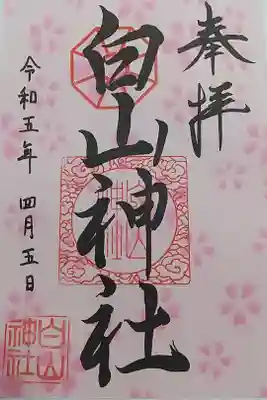 奉拝
白山神社
令和五年 四月五日
白山
神社